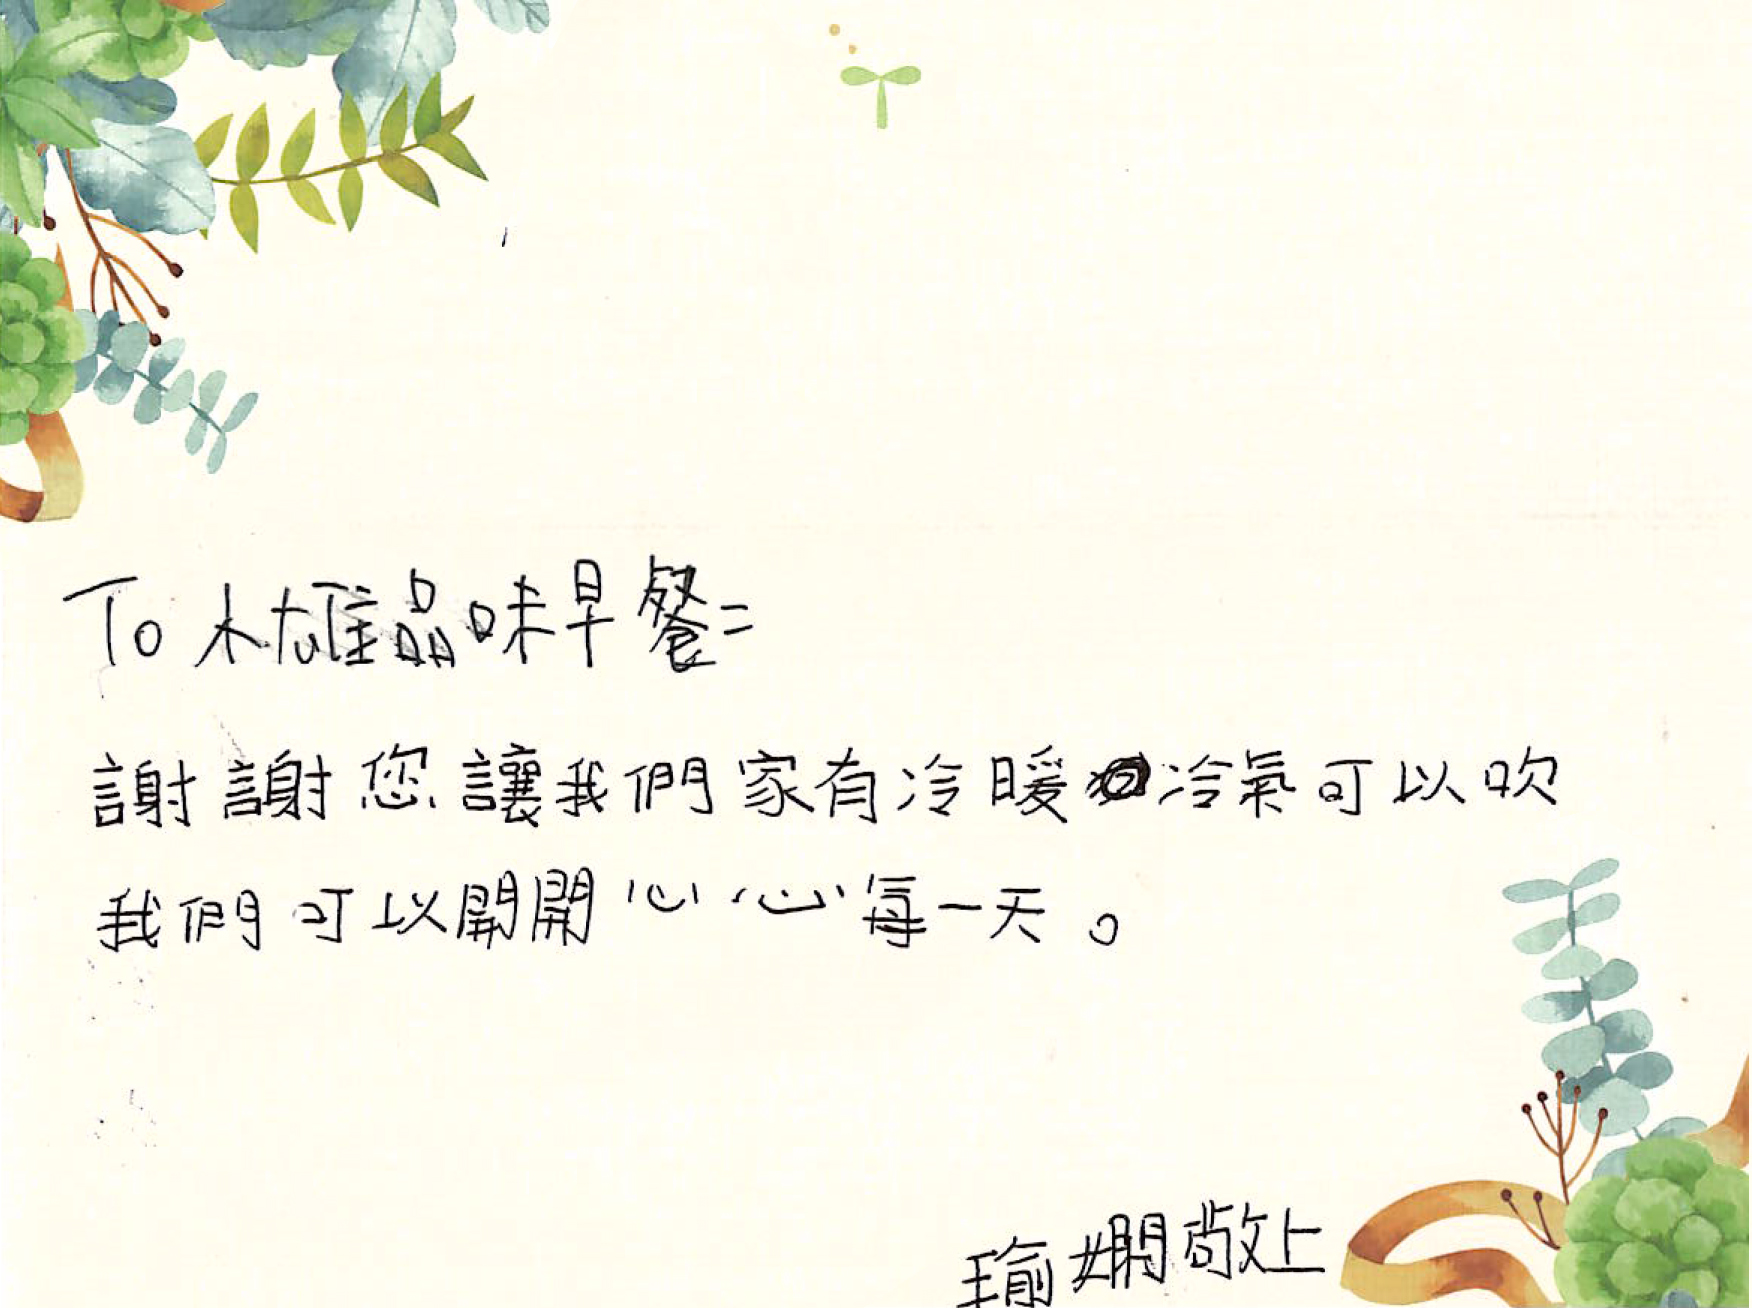 To 木雄品味早餐:
謝謝您讓我們家有冷暖冷氣可以吹
我們可以開開心心每一天。
瑜嫻敬上